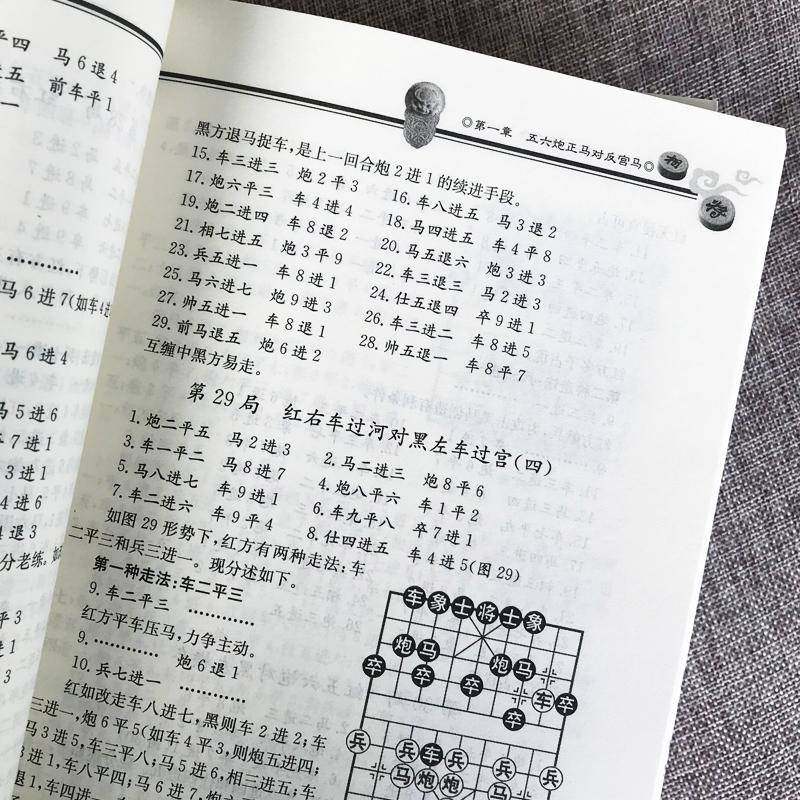 平四 马6退4
进五 前车平1
一
…………
马6进7(如车4进
马6进4
马5进6
卒7进1
3进1
4进6
退3
分老练。如
平3
◎第一章 五六炮正马对反宫马◎
黑方退马捉车,是上一回合炮2进1的续进手段。
15.车三进三 炮2平3 16.车八进五 马3退2
17.炮六平三 车4进4 18.马四进五 车4平8
19.炮二进四 车8退2 20.马五退六 炮3进3
21.相七进五 炮3平9 22.车三退三 马2进3
23.兵五进一 车8进1 24.仕五退四 卒9进1
25.马六进七 炮9进3 26.车三进二 车8进5
27.帅五进一 车8退1 28.帅五退一 车8平7
29.前马退五 炮6进2
互缠中黑方易走。
第29局 红右车过河对黑左车过宫(四)
1.炮二平五 马2进3 2.马二进三 炮8平6
3.车一平二 马8进7 4.炮八平六 车1平2
5.马八进七 车9进1 6.车九平八 卒7进1
7.车二进六 车9平4 8.仕四进五 车4进5(图29)
如图29形势下,红方有两种走法:车
二平三和兵三进一。现分述如下。
第一种走法:车二平三
9.车二平三 …………
红方平车压马,力争主动。
9.………… 炮6退1
10.兵七进一 …………
红如改走车八进七,黑则车2进2;车
三进一,炮6平5(如车4平3,则炮五进四;
马3进5,车三平八;马5进6,相三进五;车
3进1,车八平四;马6进7,炮六
退1,车四进一
车 象 士 将 士 象
炮 马 炮 马
卒 卒 卒 车 卒
卒
兵 兵 车 兵 兵 兵
马 炮 炮 马